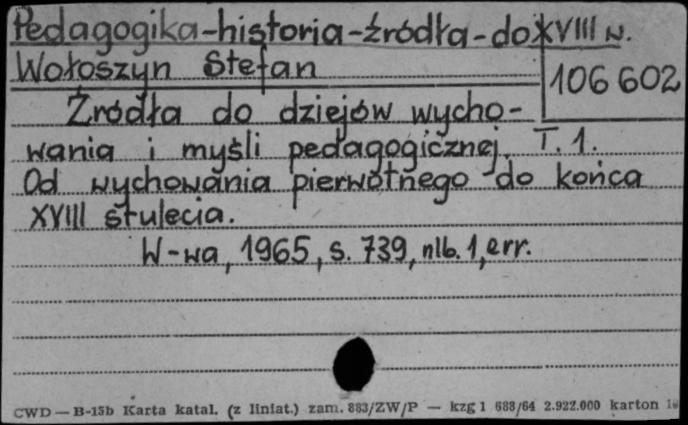 Pedagogika-historia-źródła-do XVIII w.
Wołoszyn Stefan
106 602
Źródła do dziejów wycho-
wania i myśli pedagogicznej. T. 1.
Od wychowania pierwotnego do końca
XVIII stulecia.
W-wa, 1965, s. 739, nlb. 1, err.
CWD — B-15b Karta katal. (z liniat.) zam. 883/ZW/P — kzg 1 688/64 2.922.000 karton